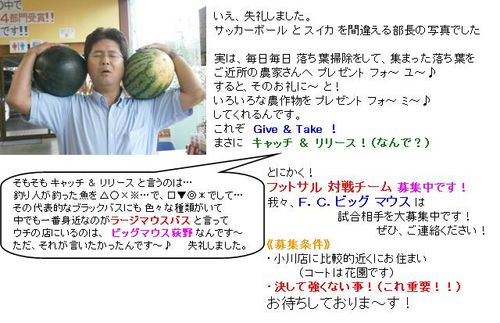 ４部門受賞!!
いえ、失礼しました。
サッカーボール と スイカ を間違える部長の写真でした
実は、毎日毎日 落ち葉掃除をして、集まった落ち葉を
ご近所の農家さんへ プレゼント フォ～ ユ～♪
すると、そのお礼に～ と！
いろいろな農作物を プレゼント フォ～ ミ～♪
してくれるんです。
これぞ Give & Take ！
まさに キャッチ & リリース！（なんで？）
そもそも キャッチ & リリース と言うのは…
釣り人が釣った魚を △○×※…で、□▼◎＊でして…
その代表的なブラックバスにも 色々な種類がいて
中でも一番身近なのがラージマウスバス と言って
ウチの店にいるのは、 ビッグマウス荻野 なんです～
ただ、それが言いたかったんです～♪ 失礼しました。
とにかく！
フットサル 対戦チーム 募集中です！
我々、Ｆ．Ｃ．ビッグ マウス は
試合相手を大募集中です！
ぜひ、ご連絡ください！
《募集条件》
・小川店に比較的近くにお住まい
（コートは花園です）
・決して強くない事！（これ重要！！）
お待ちしておりま～す！